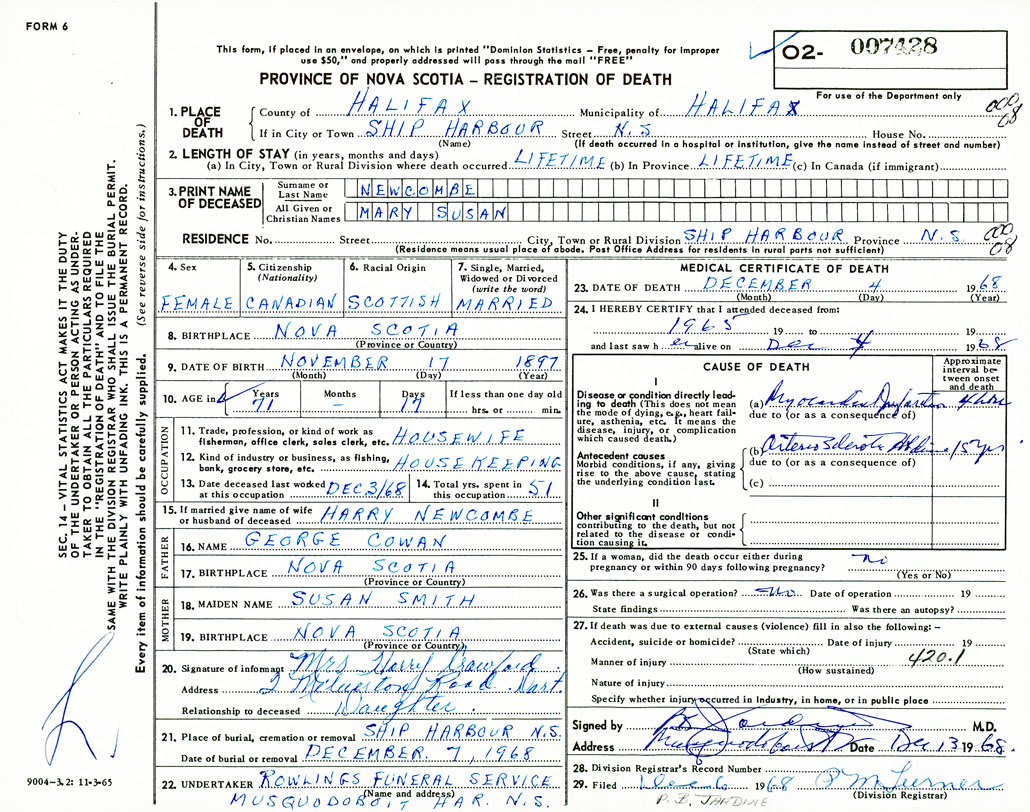 FORM 6
This form, if placed in an envelope, on which is printed "Dominion Statistics – Free, penalty for improper
use $50," and properly addressed will pass through the mail "FREE"
O2- 007428
For use of the Department only
PROVINCE OF NOVA SCOTIA – REGISTRATION OF DEATH
000
08
1. PLACE OF DEATH
County of HALIFAX Municipality of HALIFAX
If in City or Town SHIP HARBOUR Street N.S House No.
(Name) (If death occurred in a hospital or institution, give the name instead of street and number)
2. LENGTH OF STAY (in years, months and days)
(a) In City, Town or Rural Division where death occurred LIFETIME (b) In Province LIFETIME (c) In Canada (if immigrant)
3. PRINT NAME OF DECEASED
Surname or Last Name NEWCOMBE
All Given or Christian Names MARY SUSAN
RESIDENCE No. Street City, Town or Rural Division SHIP HARBOUR Province N.S. 000
08
(Residence means usual place of abode. Post Office Address for residents in rural parts not sufficient)
4. Sex FEMALE
5. Citizenship (Nationality) CANADIAN
6. Racial Origin SCOTTISH
7. Single, Married, Widowed or Divorced (write the word) MARRIED
8. BIRTHPLACE NOVA SCOTIA
(Province or Country)
9. DATE OF BIRTH NOVEMBER 17 1897
(Month) (Day) (Year)
10. AGE in Years 71 Months – Days 17 If less than one day old hrs. or min.
OCCUPATION
11. Trade, profession, or kind of work as
fisherman, office clerk, sales clerk, etc. HOUSEWIFE
12. Kind of industry or business, as fishing,
bank, grocery store, etc. HOUSEKEEPING
13. Date deceased last worked
at this occupation DEC 3/68
14. Total yrs. spent in
this occupation 51
15. If married give name of wife
or husband of deceased HARRY NEWCOMBE
FATHER
16. NAME GEORGE COWAN
17. BIRTHPLACE NOVA SCOTIA
(Province or Country)
MOTHER
18. MAIDEN NAME SUSAN SMITH
19. BIRTHPLACE NOVA SCOTIA
(Province or Country)
20. Signature of informant Mrs Harry Crawford
Address 2 Road Dart.
Relationship to deceased Daughter.
21. Place of burial, cremation or removal SHIP HARBOUR N.S.
Date of burial or removal DECEMBER. 7, 1968
22. UNDERTAKER ROWLINGS FUNERAL SERVICE
(Name and address)
MUSQUODOBOIT HAR. N.S.
MEDICAL CERTIFICATE OF DEATH
23. DATE OF DEATH DECEMBER 4 1968
(Month) (Day) (Year)
24. I HEREBY CERTIFY that I attended deceased from:
1965 19 to 19
and last saw her alive on Dec 4 1968
CAUSE OF DEATH
Approximate interval between onset and death
I
Disease or condition directly leading to death (This does not mean
the mode of dying, e.g., heart failure, asthenia, etc. It means the
disease, injury, or complication
which caused death.)
(a) Myocardial Infarction
due to (or as a consequence of)
Antecedent causes
Morbid conditions, if any, giving
rise to the above cause, stating
the underlying condition last.
(b) Arteriosclerotic 15 yrs
due to (or as a consequence of)
(c)
II
Other significant conditions
contributing to the death, but not
related to the disease or condition causing it.
25. If a woman, did the death occur either during
pregnancy or within 90 days following pregnancy? no
(Yes or No)
26. Was there a surgical operation? no Date of operation 19
State findings Was there an autopsy?
27. If death was due to external causes (violence) fill in also the following: –
Accident, suicide or homicide? Date of injury 19
(State which)
Manner of injury 420.1
(How sustained)
Nature of injury
Specify whether injury occurred in Industry, in home, or in public place
Signed by M.D.
Address Date Dec 13 1968.
28. Division Registrar's Record Number
29. Filed 1968
(Division Registrar)
P. B. JARDINE
SEC. 14 – VITAL STATISTICS ACT MAKES IT THE DUTY
OF THE UNDERTAKER OR PERSON ACTING AS UNDER-
TAKER TO OBTAIN ALL THE PARTICULARS REQUIRED
IN THE "REGISTRATION OF DEATH" AND TO FILE THE
SAME WITH THE DIVISION REGISTRAR WHO SHALL ISSUE THE BURIAL PERMIT.
WRITE PLAINLY WITH UNFADING INK. THIS IS A PERMANENT RECORD.
Every item of information should be carefully supplied. (See reverse side for instructions.)
9004-3.2: 11-3-65